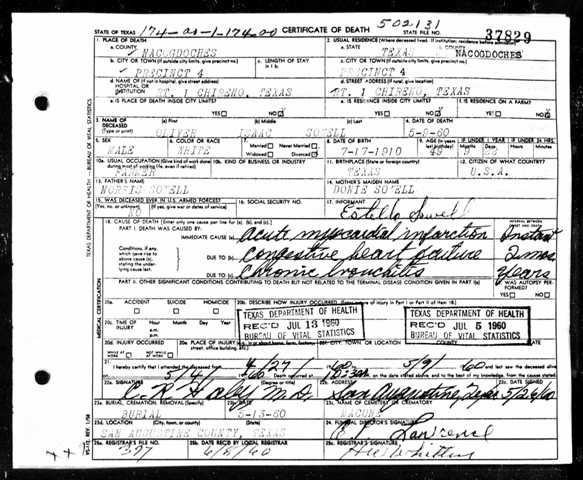 502131
STATE OF TEXAS 174-00-1-174.00 CERTIFICATE OF DEATH STATE FILE NO. 37829
1. PLACE OF DEATH 2. USUAL RESIDENCE (Where deceased lived. If institution: residence before admission)
a. COUNTY NACOGDOCHES a. STATE TEXAS b. COUNTY NACOGDOCHES
b. CITY OR TOWN (If outside city limits, give precinct no.) c. LENGTH OF STAY in 1 b. c. CITY OR TOWN (If outside city limits, give precinct no.)
PRECINCT 4 PRECINCT 4
d. NAME OF (If not in hospital, give street address) HOSPITAL OR INSTITUTION RT. 1 CHIRENO, TEXAS d. STREET ADDRESS (If rural, give location) RT. 1 CHIRENO, TEXAS
e. IS PLACE OF DEATH INSIDE CITY LIMITS? YES NO X e. IS RESIDENCE INSIDE CITY LIMITS? YES NO X f. IS RESIDENCE ON A FARM? YES NO
3. NAME OF DECEASED (Type or print) (a) First (b) Middle (c) Last 4. DATE OF DEATH
OLIVER ISAAC SOWELL 5-9-60
5. SEX 6. COLOR OR RACE 7. Married Never Married Widowed Divorced 8. DATE OF BIRTH 9. AGE (In years last birthday) IF UNDER 1 YEAR IF UNDER 24 HRS.
MALE WHITE 7-17-1910 49
10a. USUAL OCCUPATION (Give kind of work done 10b. KIND OF BUSINESS OR INDUSTRY 11. BIRTHPLACE (State or foreign country) 12. CITIZEN OF WHAT COUNTRY?
FARMER TEXAS U.S.A.
13. FATHER'S NAME 14. MOTHER'S MAIDEN NAME
NORRIS SOWELL DONIE SOWELL
15. WAS DECEASED EVER IN U.S. ARMED FORCES? 16. SOCIAL SECURITY NO. 17. INFORMANT
(Yes, no, or unknown) (If yes, give war or dates of service)
NO Estelle Sowell
18. CAUSE OF DEATH (Enter only one cause per line for (a), (b), and (c).) INTERVAL BETWEEN ONSET AND DEATH
PART I. DEATH WAS CAUSED BY:
IMMEDIATE CAUSE (a) acute myocardial infarction Instant
Conditions, if any, which gave rise to above cause (a), stating the underlying cause last.
DUE TO (b) congestive heart failure 2 mos
DUE TO (c) chronic bronchitis years
PART II. OTHER SIGNIFICANT CONDITIONS CONTRIBUTING TO DEATH BUT NOT RELATED TO THE TERMINAL DISEASE CONDITION GIVEN IN PART I(a) 19. WAS AUTOPSY PERFORMED? YES NO
20a. ACCIDENT SUICIDE HOMICIDE 20b. DESCRIBE HOW INJURY OCCURRED. (Enter nature of injury in Part I or Part II of item 18.)
TEXAS DEPARTMENT OF HEALTH
REC'D JUL 13 1960
BUREAU OF VITAL STATISTICS
TEXAS DEPARTMENT OF HEALTH
REC'D JUL 5 1960
BUREAU OF VITAL STATISTICS
20c. TIME OF INJURY Hour Month Day Year a.m. p.m.
20d. INJURY OCCURRED WHILE AT WORK NOT WHILE AT WORK 20e. PLACE OF INJURY 20f. CITY, TOWN, OR LOCATION COUNTY STATE
21. I hereby certify that I attended the deceased from 4/27 60 5/9 60 and last saw the deceased alive
22a. SIGNATURE (Degree or title) 22b. ADDRESS 22c. DATE SIGNED
C. R. Haley M.D. San Augustine, Texas 5/26/60
23a. BURIAL, CREMATION, REMOVAL (Specify) 23b. DATE 23c. NAME OF CEMETERY OR CREMATORY
BURIAL 5-13-60 MACUNE
23d. LOCATION (City, town, or county) (State) 24. FUNERAL DIRECTOR'S SIGNATURE
SAN AUGUSTINE COUNTY, TEXAS Lawrence
25a. REGISTRAR'S FILE NO. 25b. DATE REC'D BY LOCAL REGISTRAR 25c. REGISTRAR'S SIGNATURE
377
TEXAS DEPARTMENT OF HEALTH — BUREAU OF VITAL STATISTICS
MEDICAL CERTIFICATION